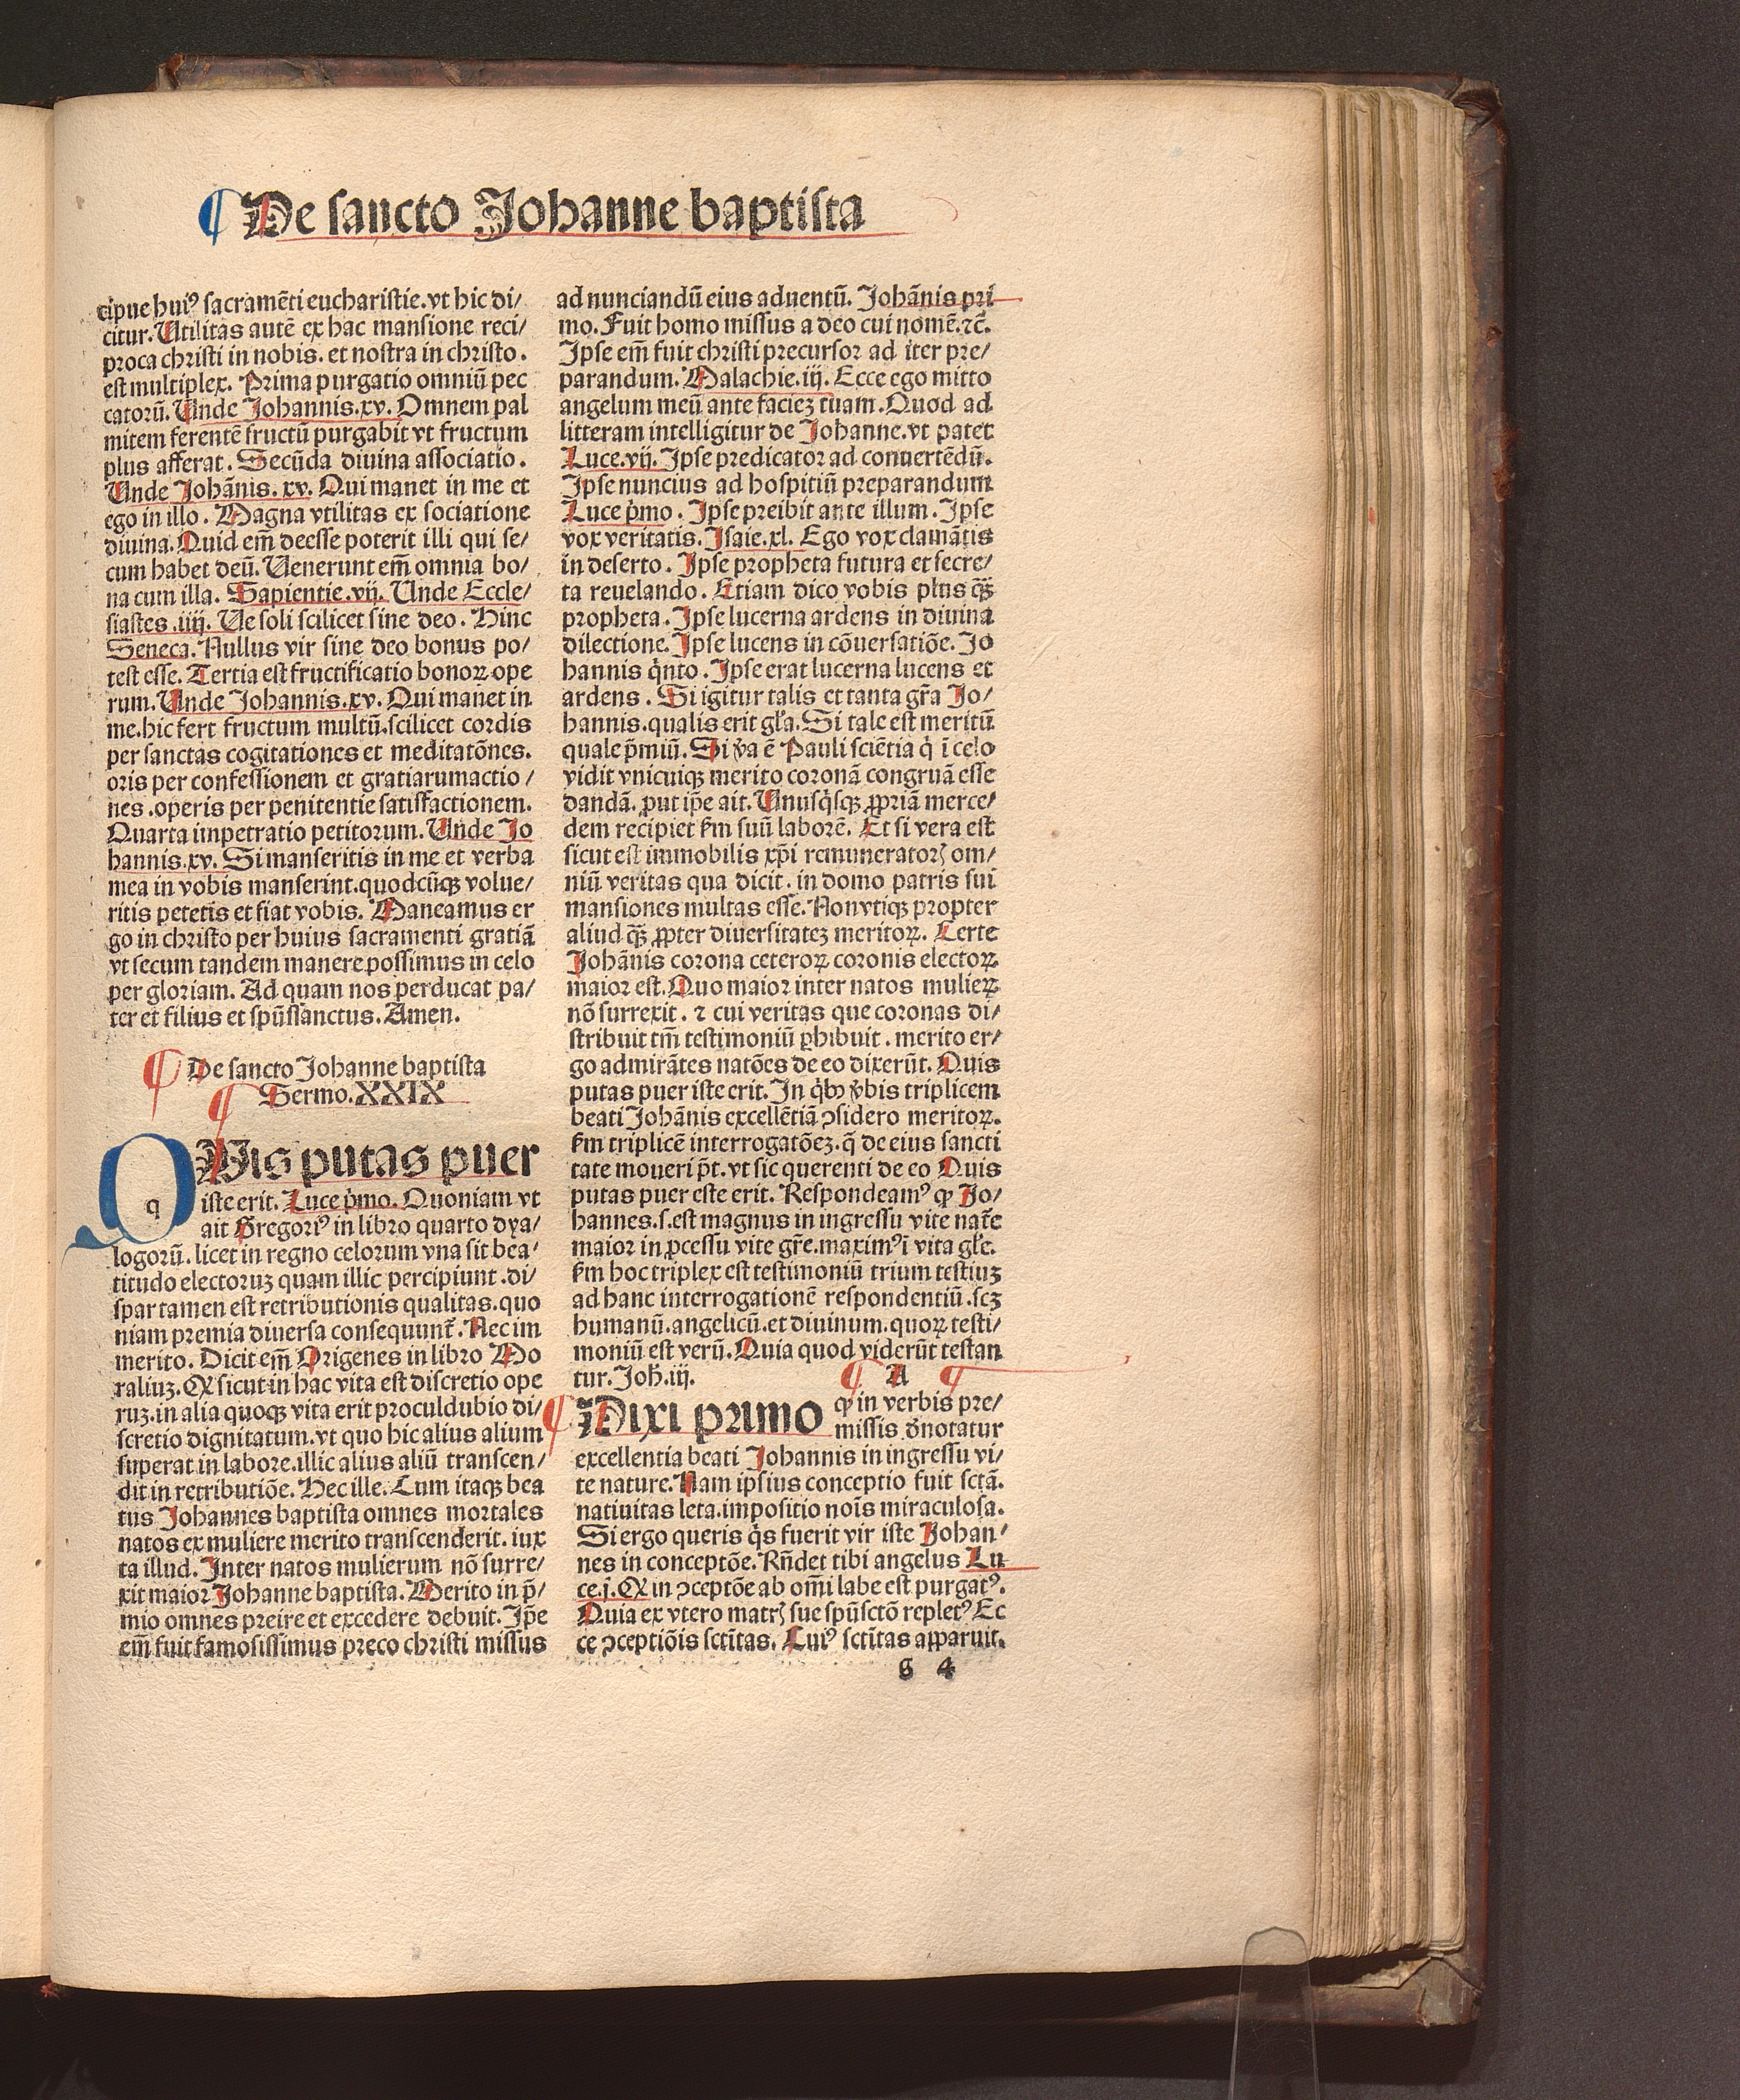 ¶ De sancto Johanne baptista
cipue huiꝰ sacramēti eucharistie. vt hic di/
citur. Utilitas autē ex hac mansione reci/
proca christi in nobis. et nostra in christo.
est multiplex. Prima purgatio omniū pec
catorū. Unde Johannis. xv. Omnem pal
mitem ferentē fructū purgabit vt fructum
plus afferat. Secūda diuina associatio.
Unde Johānis. xv. Qui manet in me et
ego in illo. Magna vtilitas ex sociatione
diuina. Quid em̄ deesse poterit illi qui se/
cum habet deū. Uenerunt em̄ omnia bo/
na cum illa. Sapientie. vij. Unde Eccle/
siastes. iiij. Ue soli scilicet sine deo. Hinc
Seneca. Nullus vir sine deo bonus po/
test esse. Tertia est fructificatio bonoꝝ ope
rum. Unde Johannis. xv. Qui manet in
me. hic fert fructum multū. scilicet cordis
per sanctas cogitationes et meditatōnes.
oris per confessionem et gratiarumactio/
nes. operis per penitentie satisfactionem.
Quarta impetratio petitorum. Unde Jo
hannis. xv. Si manseritis in me et verba
mea in vobis manserint. quodcūqꝫ volue/
ritis petetis et fiat vobis. Maneamus er
go in christo per huius sacramenti gratiā
vt secum tandem manere possimus in celo
per gloriam. Ad quam nos perducat pa/
ter et filius et spūssanctus. Amen.
¶ De sancto Johanne baptista
¶ Sermo. XXIX
QUis putas puer
iste erit. Luce pͥmo. Quoniam vt
ait Gregoriꝰ in libro quarto dya/
logorū. licet in regno celorum vna sit bea/
titudo electoruꝫ quam illic percipiunt. di/
spar tamen est retributionis qualitas. quo
niam premia diuersa consequunt̄. Nec im
merito. Dicit em̄ Origenes in libro Mo
raliuꝫ. Qꝛ sicut in hac vita est discretio ope
ruꝫ. in alia quoqꝫ vita erit proculdubio di/
scretio dignitatum. vt quo hic alius alium
superat in labore. illic alius aliū transcen/
dit in retributiōe. Hec ille. Cum itaqꝫ bea
tus Johannes baptista omnes mortales
natos ex muliere merito transcenderit. iux
ta illud. Inter natos mulierum nō surre/
xit maior Johanne baptista. Merito in p̄/
mio omnes preire et excedere debuit. Ip̄e
em̄ fuit famosissimus preco christi missus
ad nunciandū eius aduentū. Johānis pri
mo. Fuit homo missus a deo cui nomē. ⁊c̄.
Ipse em̄ fuit christi precursor ad iter pre/
parandum. Malachie. iij. Ecce ego mitto
angelum meū ante facieꝫ tuam. Quod ad
litteram intelligitur de Johanne. vt patet
Luce. vij. Ipse predicator ad conuertēdū.
Ipse nuncius ad hospitiū preparandum
Luce pͥmo. Ipse preibit ante illum. Ipse
vox veritatis. Isaie. xl. Ego vox clamātis
in deserto. Ipse propheta futura et secre/
ta reuelando. Etiam dico vobis plus qꝫ̄
propheta. Ipse lucerna ardens in diuina
dilectione. Ipse lucens in cōuersatiōe. Jo
hannis qͥnto. Ipse erat lucerna lucens et
ardens. Si igitur talis et tanta gr̄a Jo/
hannis. qualis erit gl̄a. Si tale est meritū
quale p̄miū. Si v̓a ē Pauli sciētia qͥ ī celo
vidit vnicuiqꝫ merito coronā congruā esse
dandā. ꝓut ip̄e ait. Unusqͥsqꝫ ꝓpriā merce/
dem recipiet ẜm suū laborē. Et si vera est
sicut est immobilis xp̄i remuneratorꝭ om/
niū veritas qua dicit. in domo patris sui
mansiones multas esse. Non vtiqꝫ propter
aliud qꝫ̄ ꝓpter diuersitateꝫ meritoꝝ. Certe
Johānis corona ceteroꝝ coronis electoꝝ
maior est. Quo maior inter natos mulieꝝ
nō surrexit. ⁊ cui veritas que coronas di/
stribuit tm̄ testimoniū ꝑhibuit. merito er/
go admirātes natōes de eo dixerūt. Quis
putas puer iste erit. In qͥbꝫ v̓bis triplicem
beati Johānis excellētiā ↄsidero meritoꝝ.
ẜm triplicē interrogatōeꝫ. q̄ de eius sancti
tate moueri p̄t. vt sic querenti de eo Quis
putas puer este erit. Respondeamꝰ ꝙ Jo/
hannes. s. est magnus in ingressu vite nat̄e
maior in ꝓcessu vite gr̄e. maximꝰ ī vita gl̄e.
ẜm hoc triplex est testimoniū trium testiuꝫ
ad hanc interrogationē respondentiū. scꝫ
humanū. angelicū. et diuinum. quoꝝ testi/
moniū est verū. Quia quod viderūt testan
tur. Joh̄. iij. ¶ A ¶
¶ Dixi primo ꝙ in verbis pre/
missis d̓notatur
excellentia beati Johannis in ingressu vi/
te nature. Nam ipsius conceptio fuit sctā.
natiuitas leta. impositio noīs miraculosa.
Si ergo queris qͥs fuerit vir iste Johan/
nes in conceptōe. Rn̄det tibi angelus Lu
ce. j. Qꝛ in ↄceptōe ab om̄i labe est purgatꝰ.
Quia ex vtero matrꝭ sue spūsctō repletꝰ Ec
ce ↄceptiōis sctītas. Cuiꝰ sctītas apparuit.
G 4